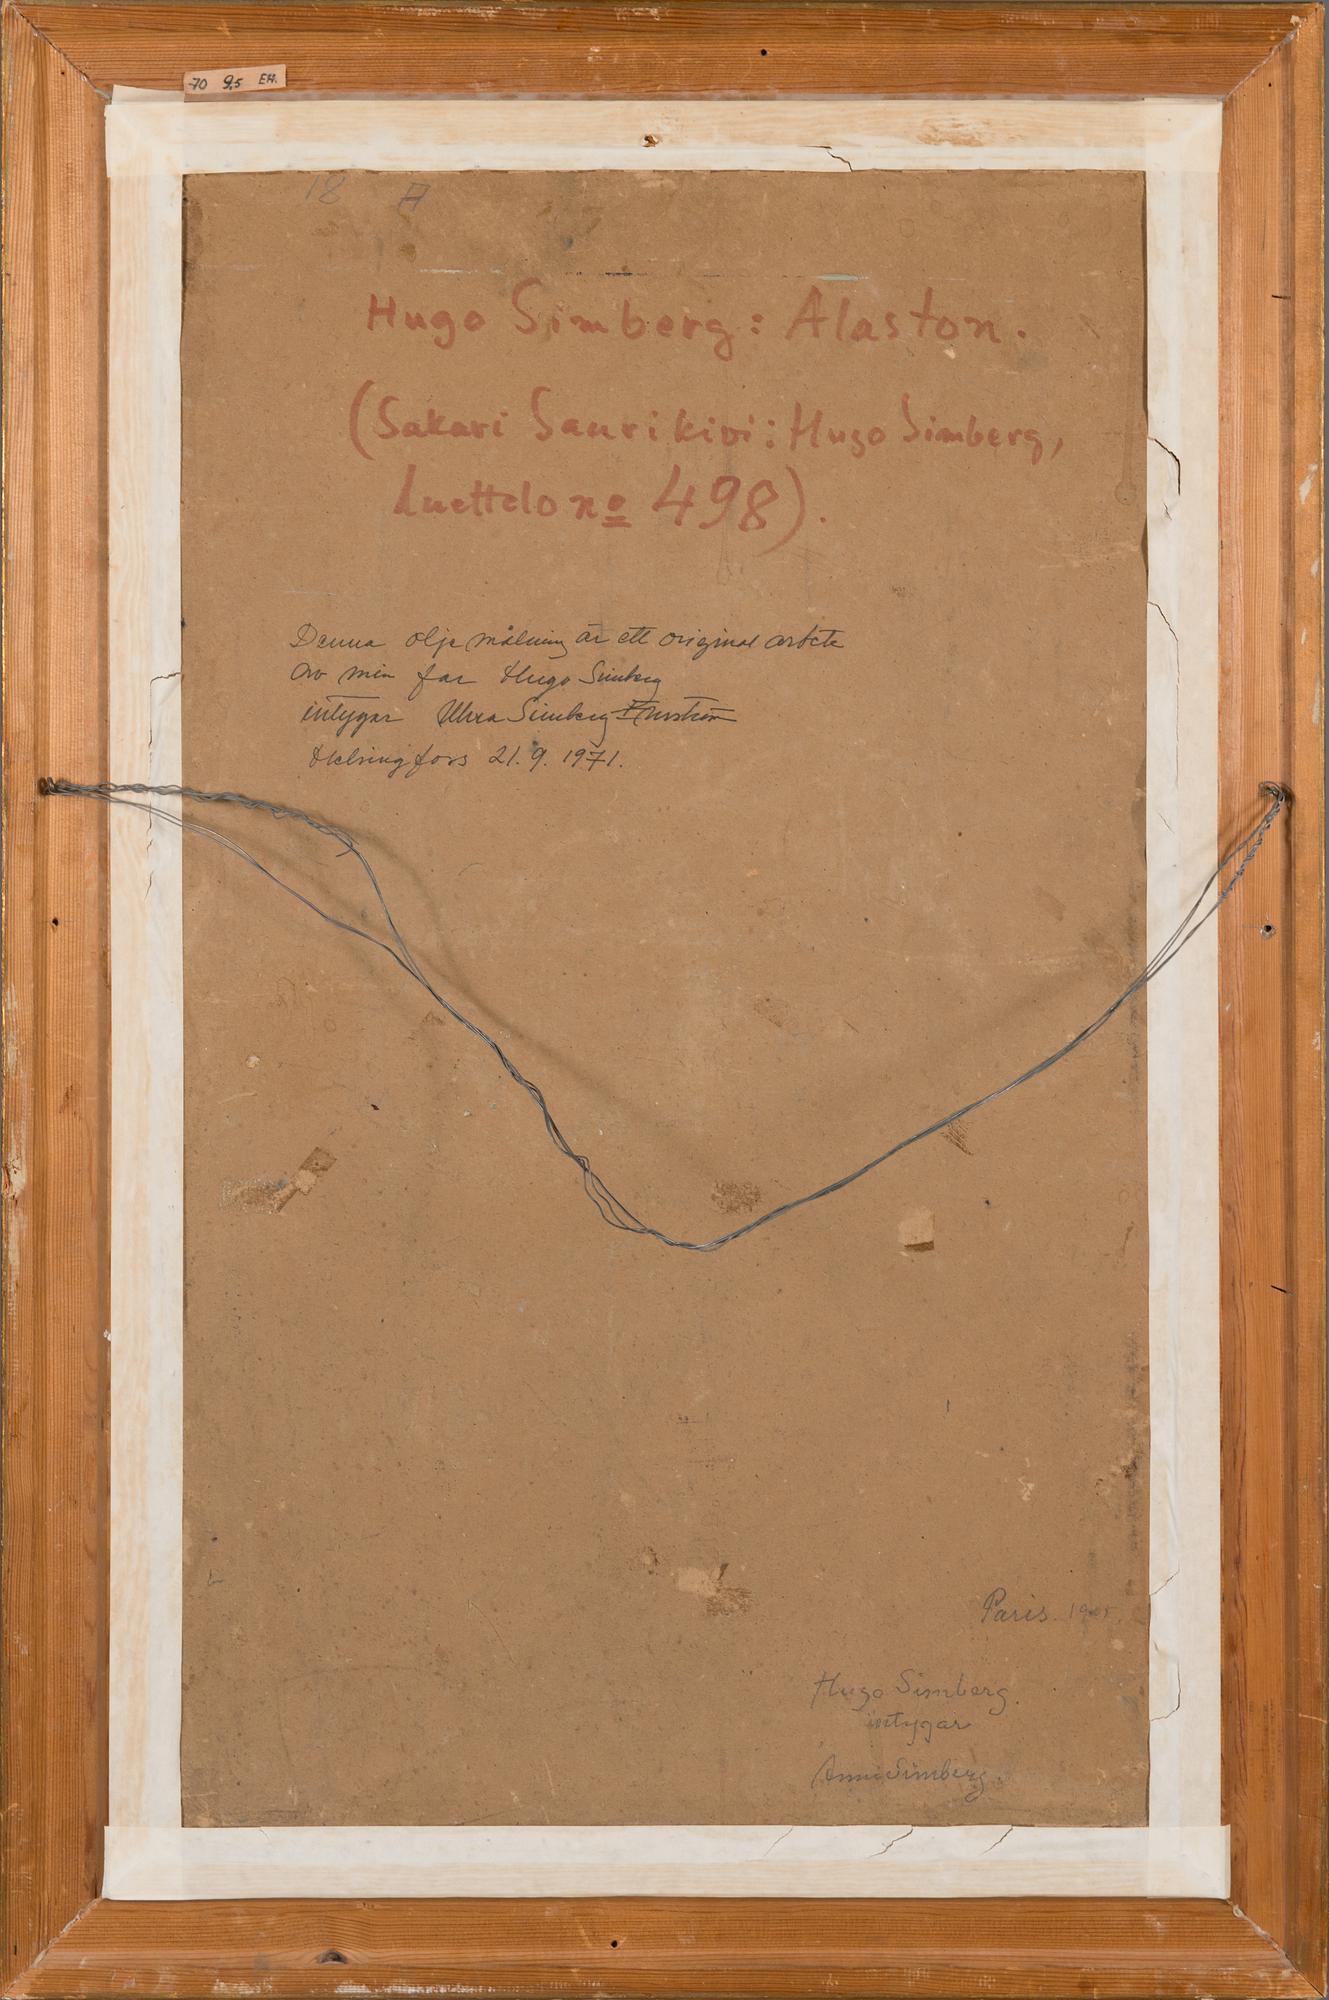 -70 9,5 EH.
18 A
Hugo Simberg: Alaston.
(Sakari Saarikivi: Hugo Simberg,
Luettelo nº 498).
Denna olje målning är ett original arbete
av min far Hugo Simberg
intygar Uhra Simberg-Ehrström
Helsingfors 21.9.1971.
Paris
Hugo Simberg.
intygar
Anni Simberg.